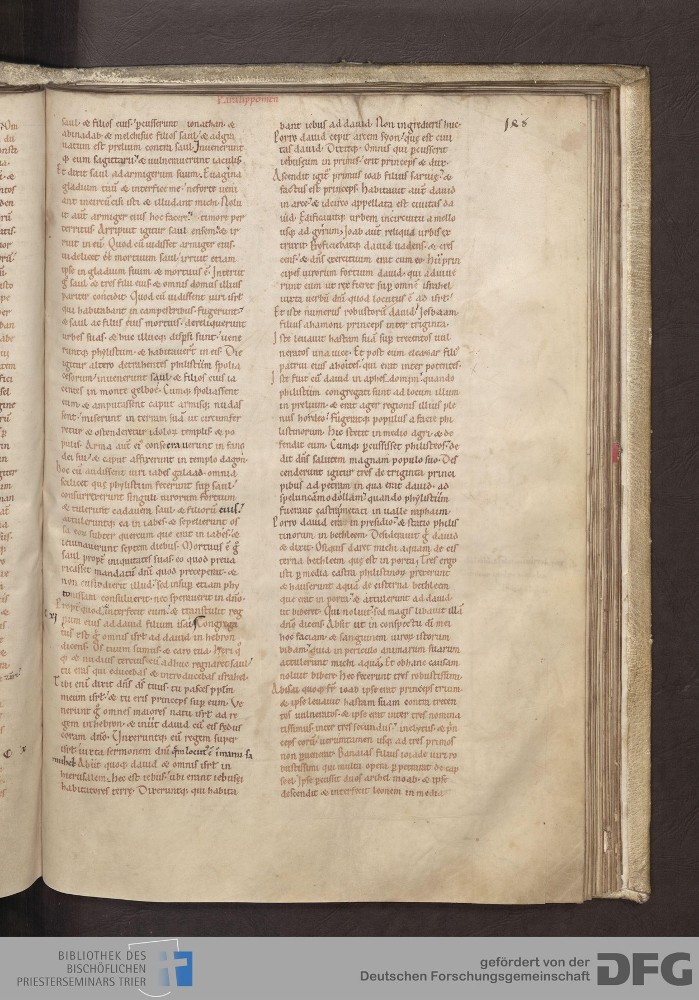 Paralippomen
188
saul. & filios eius. percusserunt ionathan. &
abinadab. & melchisue filios saul. & adgra
uatum est prelium contra saul. Inuenerunt
q eum sagittarii. & uulnerauerunt iaculis.
Et dixit saul ad armigerum suum. Euagina
gladium tuū. & interfice me. ne forte ueni
ant incircūcisi isti & illudant michi. Nolu
it autē armiger eius hoc facere. timore per
territus. Arripuit igitur saul ensem. & ir
ruit in eū. Quod cū uidisset armiger eius.
uidelicet ob mortuum saul. irruit etiam
ipse in gladium suum & mortuus ē. Interiit
g saul & tres filii eius. & omnis domus illius
pariter concidit. Quod cū uidissent uiri isrl
qui habitabant in campestribus. fugerunt.
& saul ac filiis eius mortuis. dereliquerunt
urbes suas. & huc illucq dispsi sunt. uene
runtq philistiim. & habitauerūt in eis. Die
igitur altero detrahentes philistiim spolia
cesorum. inuenerunt saul. & filios eius ia
centes in monte gelboe. Cumq spoliassent
eum. & amputassent caput. armisq nudas
sent. miserunt in terram suā ut circumfer
retur & ostenderetur idolorū templis & po
pulis. Arma autē ei consecrauerunt in fano
dei sui. & caput affixerunt in templo dagon.
hoc cū audissent uiri iabes galaad. omnia
scilicet quę phylistiim fecerunt sup saul.
consurrexerunt singuli uirorum fortium.
& tulerunt cadauera saul. & filiorū eius.
attuleruntq ea in iabes. & sepelierunt os
sa eoꝝ subter quercum que erat in iabes. &
ieiunauerunt septem diebus. Mortuus ē g
saul propt iniquitates suas. eo quod preua
ricasset mandatū dni quod preceperat. &
non custodierit illud. sed insup etiam phy
tonissam consuluerit. nec sperauerit in dno.
Propt quod interfecit eum. & transtulit reg
num eius ad dauid filium isai. Congrega
XI
tus est g omnis isrl ad dauid in hebron
dicens. Os tuum sumus. & caro tua. Heri q
q & nudius tercius cū adhuc regnaret saul.
tu eras qui educebas & introducebas israhel.
Tibi enī dixit dns ds tuus. tu pasces pplm
meum isrl. & tu eris princeps sup eum. Ve
nerunt g omnes maiores natu isrl ad re
gem in hebron. & iniit dauid cū eis fedus
coram dno. Unxeruntq eū regem super
isrl iuxta sermonem dni quē locut ē in manu sa
muhel. Abiit quoq dauid & omnis isrl in
hierusalem. hoc est iebus. ubi erant iebusei
habitatores terrę. Dixeruntq qui habita
bant iebus ad dauid. Non ingredieris huc.
Porro dauid cepit arcem syon. quę est ciui
tas dauid. Dixitq. Omnis qui percusserit
iebuseum in primis. erit princeps & dux.
Ascendit igit primus ioab filius saruię. &
factus est princeps. Habitauit autē dauid
in arce. & idcirco appellata est ciuitas da
uid. Edificauitq urbem in circuitu a mello
usq ad gyrum. Ioab autē reliqua urbis ex
truxit. Proficiebatq dauid uadens. & cres
cens. & dns exercituum erat cum eo. Hii prin
cipes uirorum fortium dauid. qui adiuue
runt eum ut rex fieret sup omnē israhel
iuxta uerbū dni quod locutus ē ad isrl.
Et iste numerus robustorū dauid. Iesbaam
filius ahamoni princeps inter triginta.
Iste leuauit hastam suā sup trecentos uul
neratos una uice. Et post eum eleazar filius
patrui eius ahoites. qui erat inter potentes.
Iste fuit cū dauid in aphesdomim. quando
philistiim congregati sunt ad locum illum
in prelium. & erat ager regionis illius ple
nus hordeo. Fugeratq populus a facie phi
listinorum. Hic stetit in medio agri & de
fendit eum. Cumq percussisset philisteos. de
dit dns salutem magnam populo suo. Des
cenderunt igitur tres de triginta princi
pibus ad petram in qua erat dauid. ad
speluncam odollam. quando phylistiim
fuerant castrametati in ualle raphaim.
Porro dauid erat in presidio. & statio philis
tinorum in bethleem. Desiderauit g dauid
& dixit. O siquis daret michi aquam de cis
terna bethleem quę est in porta. Tres ergo
isti p media castra philistinoꝝ perrexerunt
& hauserunt aquā de cisterna bethleem
que erat in porta. & attulerunt ad dauid
ut biberet. Qui noluit. sed magis libauit illā
dno dicens. Absit ut in conspectu dī mei
hoc faciam. & sanguinem uiroꝝ istorum
bibam. quia in periculo animarum suarum
attulerunt michi aquā. Et ob hanc causam
noluit bibere. Hec fecerunt tres robustissimi.
Abisai quoq fr ioab ipse erat princeps trium
& ipse leuauit hastam suam contra trecen
tos uulneratos. & ipse erat inter tres nomina
tissimus. inter tres secundus inclytus. & prin
ceps eorū. ueruntamen usq ad tres primos
non peruenerat. Banaias filius ioiade uiri ro
bustissimi qui multa opera ppetrauit de cap
seel. Ipse percussit duos arihel moab. & ipse
descendit & interfecit leonem in media
BIBLIOTHEK DES
BISCHÖFLICHEN
PRIESTERSEMINARS TRIER
gefördert von der
Deutschen Forschungsgemeinschaft DFG